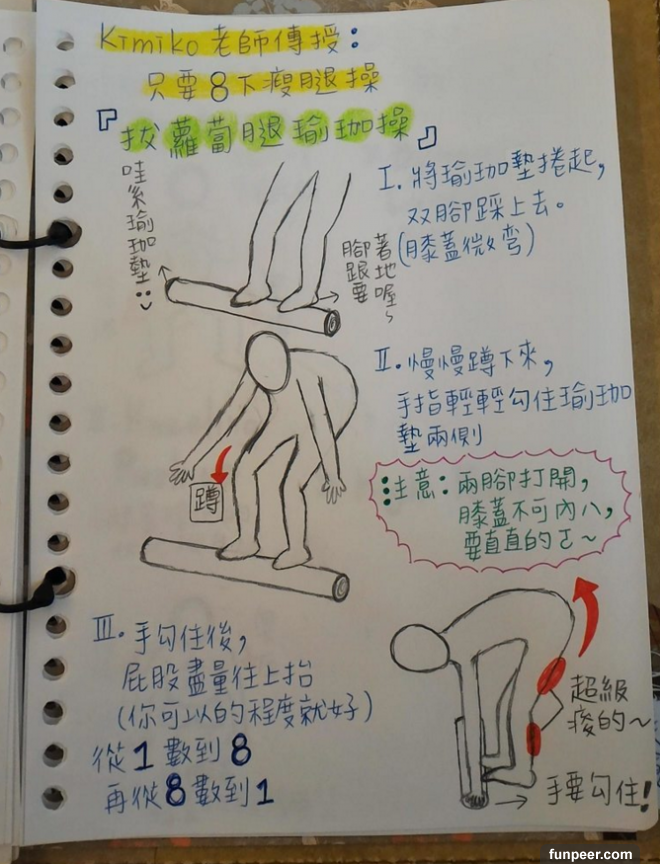 Kimiko老師傳授：
只要8下瘦腿操
『拔蘿蔔腿瑜珈操』
哇系瑜珈墊
I. 將瑜珈墊捲起，
双腳踩上去。
(膝蓋微彎)
腳跟要
著地喔～
II. 慢慢蹲下來，
手指輕輕勾住瑜珈
墊兩側
蹲
注意：兩腳打開，
膝蓋不可內八，
要直直的ㄛ～
III. 手勾住後，
屁股盡量往上抬
(你可以的程度就好)
從1數到8
再從8數到1
超級
痠的～
手要勾住！
funpeer.com